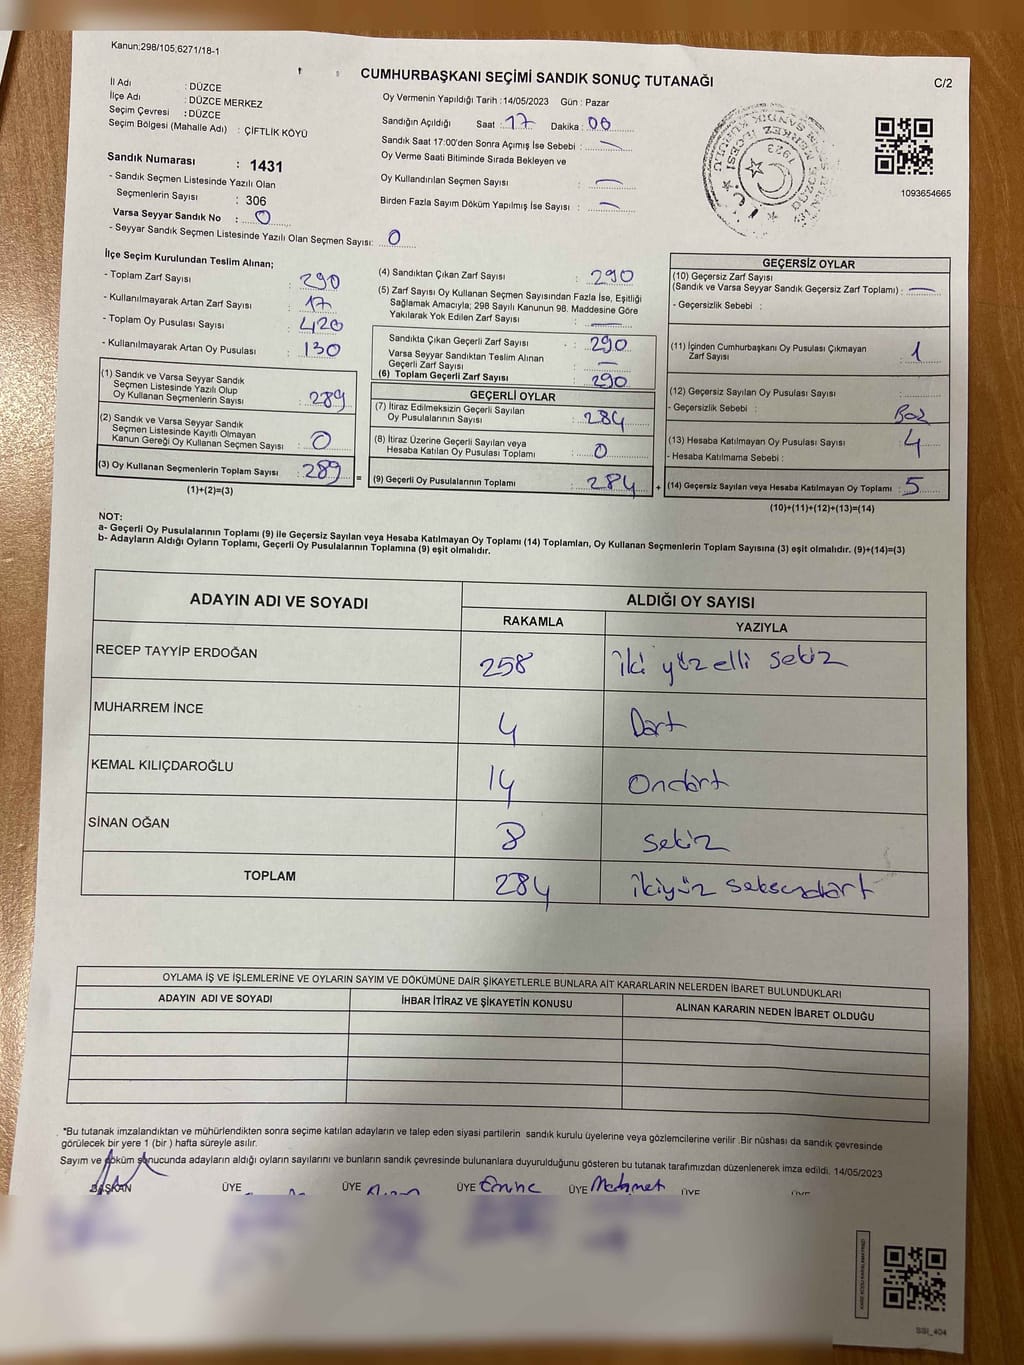 Kanun;298/105;6271/18-1
CUMHURBAŞKANI SEÇİMİ SANDIK SONUÇ TUTANAĞI
C/2
İl Adı : DÜZCE
İlçe Adı : DÜZCE MERKEZ
Seçim Çevresi : DÜZCE
Seçim Bölgesi (Mahalle Adı) : ÇİFTLİK KÖYÜ
Sandık Numarası : 1431
- Sandık Seçmen Listesinde Yazılı Olan
Seçmenlerin Sayısı : 306
Varsa Seyyar Sandık No : 0
- Seyyar Sandık Seçmen Listesinde Yazılı Olan Seçmen Sayısı: 0
Oy Vermenin Yapıldığı Tarih : 14/05/2023 Gün : Pazar
Sandığın Açıldığı Saat : 17 Dakika : 00
Sandık Saat 17:00'den Sonra Açımış İse Sebebi : —
Oy Verme Saati Bitiminde Sırada Bekleyen ve
Oy Kullandırılan Seçmen Sayısı : —
Birden Fazla Sayım Döküm Yapılmış İse Sayısı : —
1093654665
İlçe Seçim Kurulundan Teslim Alınan;
- Toplam Zarf Sayısı : 290
- Kullanılmayarak Artan Zarf Sayısı : 17
- Toplam Oy Pusulası Sayısı : 420
- Kullanılmayarak Artan Oy Pusulası : 130
(1) Sandık ve Varsa Seyyar Sandık
Seçmen Listesinde Yazılı Olup
Oy Kullanan Seçmenlerin Sayısı : 289
(2) Sandık ve Varsa Seyyar Sandık
Seçmen Listesinde Kayıtlı Olmayan
Kanun Gereği Oy Kullanan Seçmen Sayısı : 0
(3) Oy Kullanan Seçmenlerin Toplam Sayısı : 289 =
(1)+(2)=(3)
(4) Sandıktan Çıkan Zarf Sayısı : 290
(5) Zarf Sayısı Oy Kullanan Seçmen Sayısından Fazla İse, Eşitliği
Sağlamak Amacıyla; 298 Sayılı Kanunun 98. Maddesine Göre
Yakılarak Yok Edilen Zarf Sayısı : —
Sandıkta Çıkan Geçerli Zarf Sayısı : 290
Varsa Seyyar Sandıktan Teslim Alınan
Geçerli Zarf Sayısı : —
(6) Toplam Geçerli Zarf Sayısı : 290
GEÇERLİ OYLAR
(7) İtiraz Edilmeksizin Geçerli Sayılan
Oy Pusulalarının Sayısı : 284
(8) İtiraz Üzerine Geçerli Sayılan veya
Hesaba Katılan Oy Pusulası Toplamı : 0
(9) Geçerli Oy Pusulalarının Toplamı : 284 +
GEÇERSİZ OYLAR
(10) Geçersiz Zarf Sayısı
(Sandık ve Varsa Seyyar Sandık Geçersiz Zarf Toplamı) : —
- Geçersizlik Sebebi :
(11) İçinden Cumhurbaşkanı Oy Pusulası Çıkmayan
Zarf Sayısı : 1
(12) Geçersiz Sayılan Oy Pusulası Sayısı :
- Geçersizlik Sebebi : Boz
(13) Hesaba Katılmayan Oy Pusulası Sayısı : 4
- Hesaba Katılmama Sebebi :
(14) Geçersiz Sayılan veya Hesaba Katılmayan Oy Toplamı : 5
(10)+(11)+(12)+(13)=(14)
NOT:
a- Geçerli Oy Pusulalarının Toplamı (9) ile Geçersiz Sayılan veya Hesaba Katılmayan Oy Toplamı (14) Toplamları, Oy Kullanan Seçmenlerin Toplam Sayısına (3) eşit olmalıdır. (9)+(14)=(3)
b- Adayların Aldığı Oyların Toplamı, Geçerli Oy Pusulalarının Toplamına (9) eşit olmalıdır.
ADAYIN ADI VE SOYADI ALDIĞI OY SAYISI
RAKAMLA YAZIYLA
RECEP TAYYİP ERDOĞAN 258 iki yüz elli sekiz
MUHARREM İNCE 4 Dört
KEMAL KILIÇDAROĞLU 14 Ondört
SİNAN OĞAN 8 sekiz
TOPLAM 284 ikiyüz seksendört
OYLAMA İŞ VE İŞLEMLERİNE VE OYLARIN SAYIM VE DÖKÜMÜNE DAİR ŞİKAYETLERLE BUNLARA AİT KARARLARIN NELERDEN İBARET BULUNDUKLARI
ADAYIN ADI VE SOYADI İHBAR İTİRAZ VE ŞİKAYETİN KONUSU ALINAN KARARIN NEDEN İBARET OLDUĞU
*Bu tutanak imzalandıktan ve mühürlendikten sonra seçime katılan adayların ve talep eden siyasi partilerin sandık kurulu üyelerine veya gözlemcilerine verilir .Bir nüshası da sandık çevresinde
görülecek bir yere 1 (bir ) hafta süreyle asılır.
Sayım ve döküm sonucunda adayların aldığı oyların sayılarını ve bunların sandık çevresinde bulunanlara duyurulduğunu gösteren bu tutanak tarafımızdan düzenlenerek imza edildi. 14/05/2023
BAŞKAN ÜYE ÜYE ÜYE Emine ÜYE Mehmet ÜYE ÜYE
SSI_404